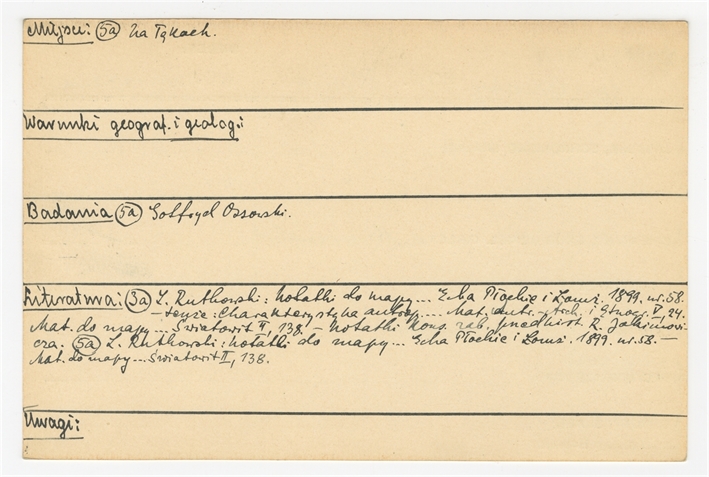 Miejsce: (5a) Na Łąkach.
Warunki geograf. i geolog.:
Badania (5a) Gotfryd Ossowski.
Literatura: (3a) L. Rutkowski: Notatki do mapy... Echa Płockie i Łomż. 1899. nr. 58.
– tenże: Charakterystyka antrop.... Mat. antr.-arch. i Etnogr. V, 24.
Mat. do mapy... Światowit II, 138. – Notatki kons. zab. przedhist. R. Jakimowi-
cza. (5a) L. Rutkowski: Notatki do mapy... Echa Płockie i Łomż. 1899. nr. 58. –
Mat. do mapy... Światowit II, 138.
Uwagi: